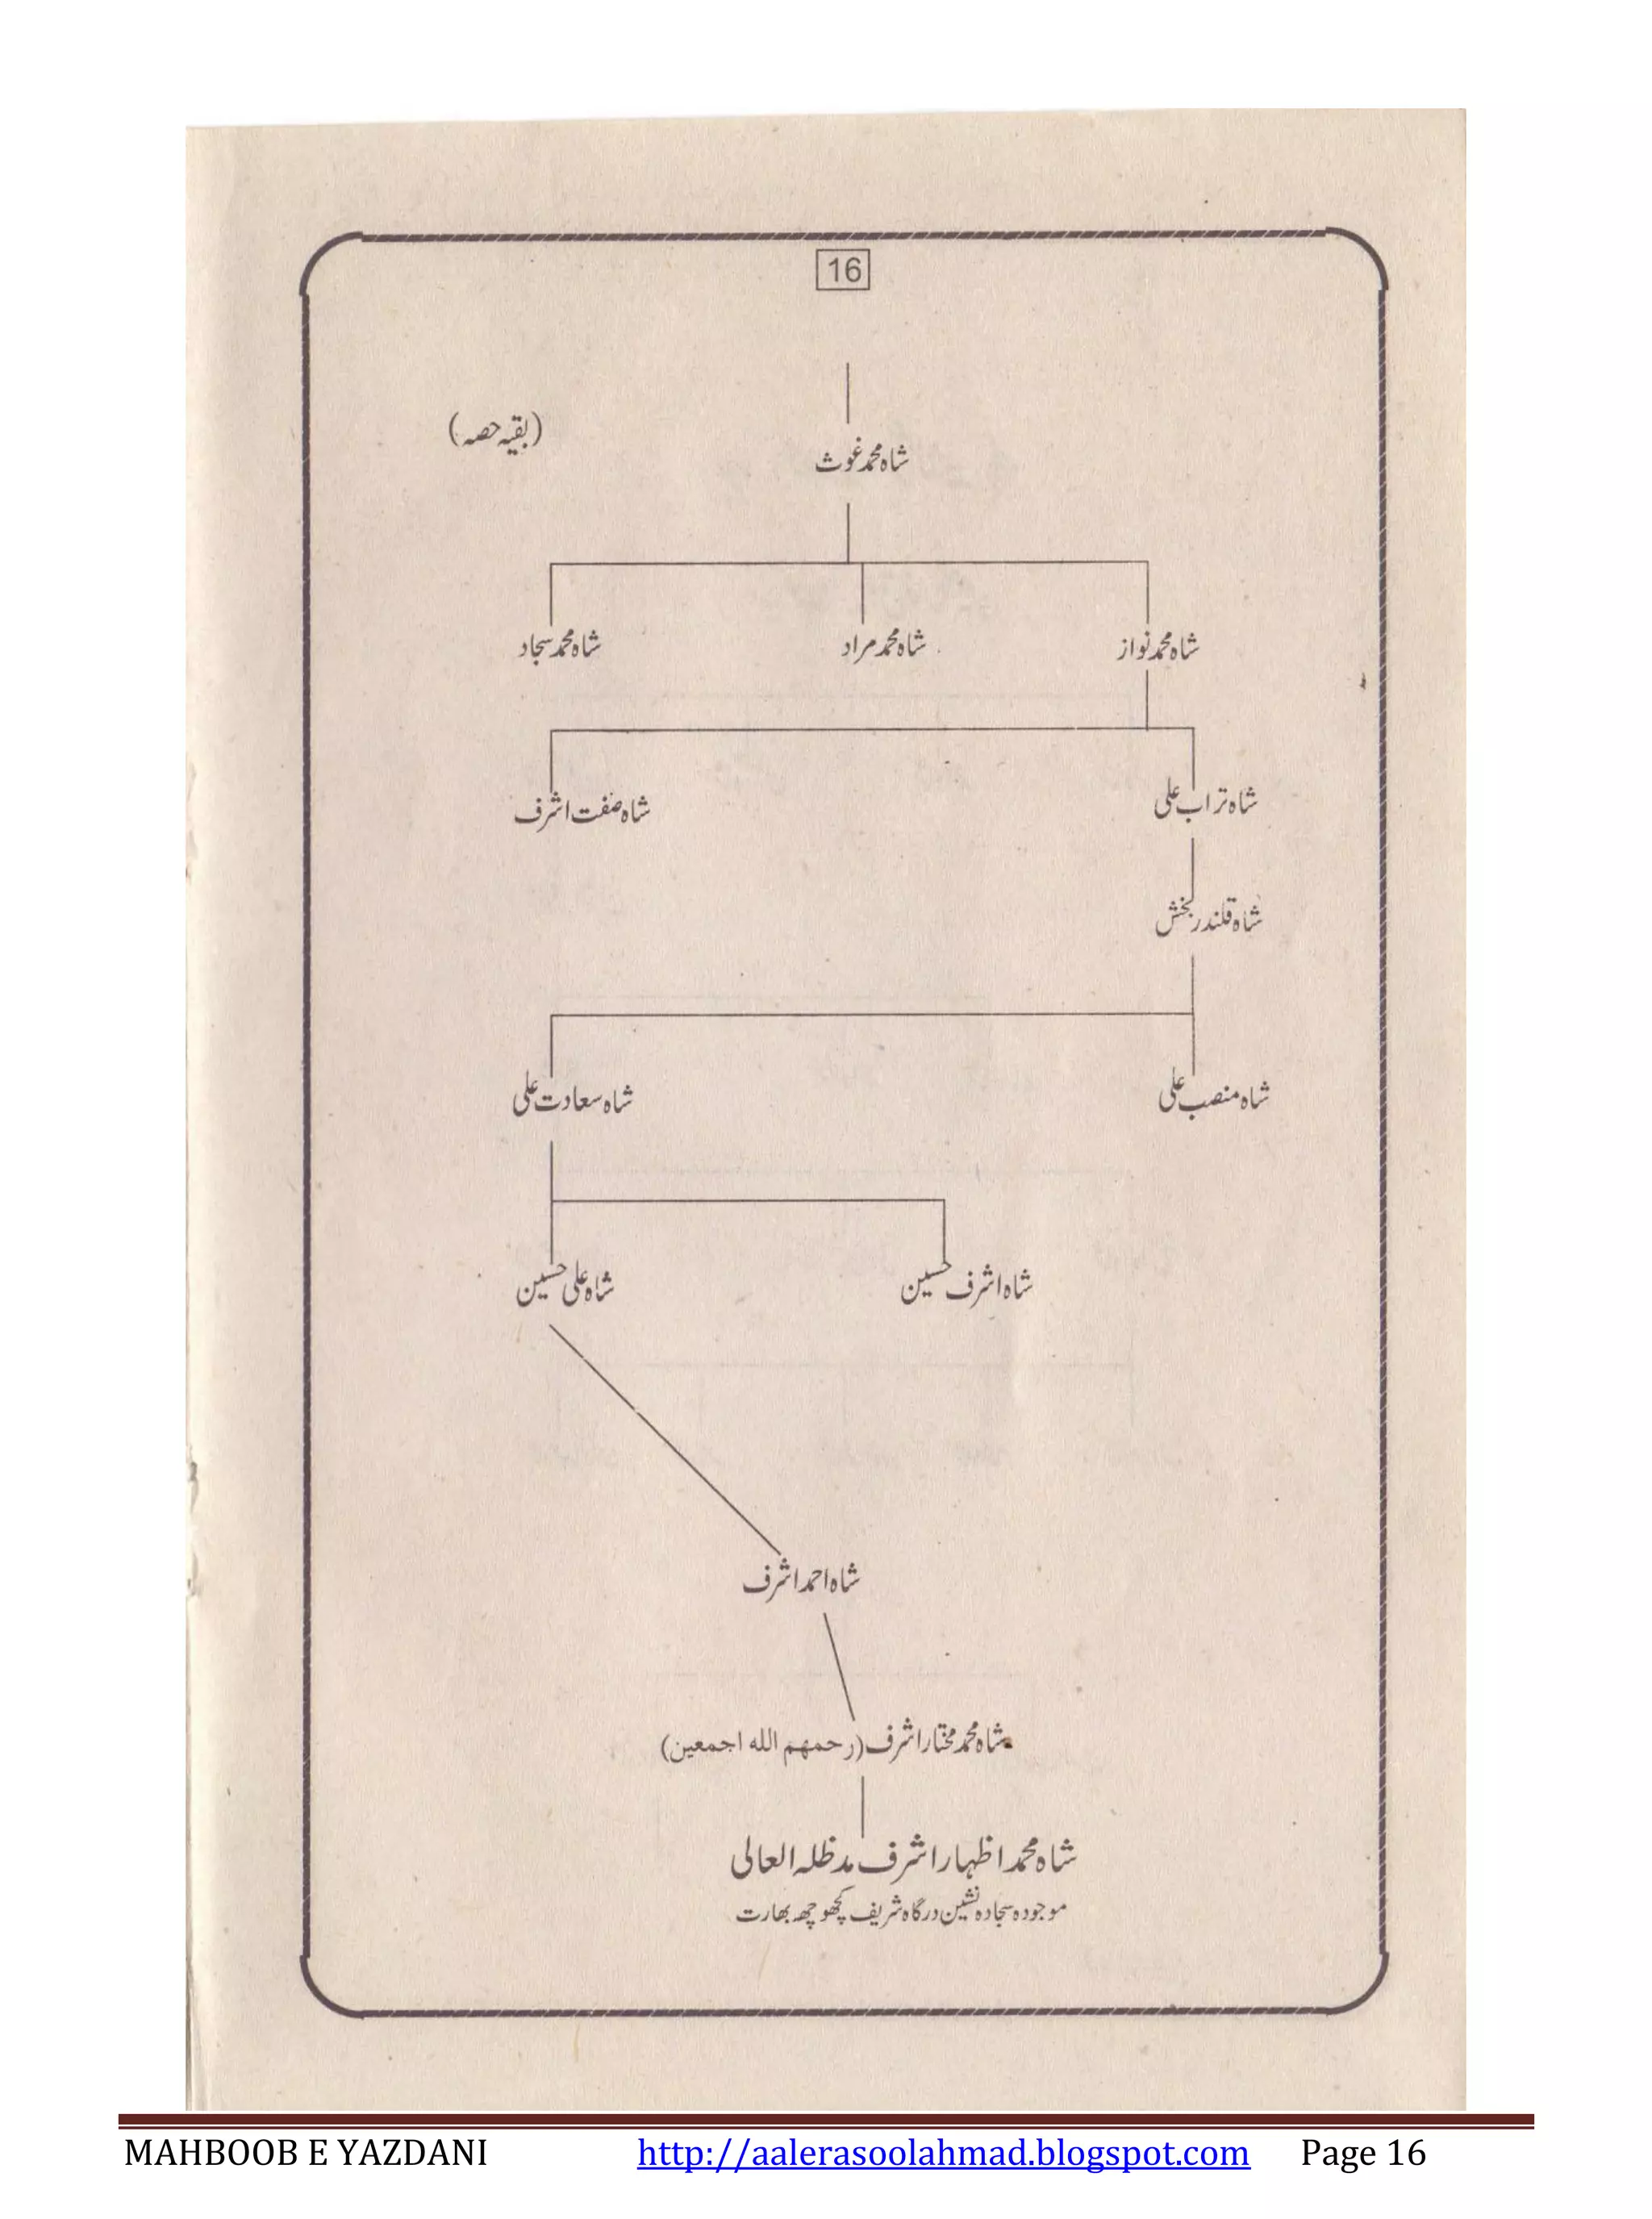 16
(بقیہ حصہ)
شاہ محمد غوث
شاہ محمد نواز
شاہ محمد مراد
شاہ محمد سجاد
شاہ تراب علی
شاہ صفت اشرف
شاہ قلندر بخش
شاہ منصب علی
شاہ سعادت علی
شاہ اشرف حسین
شاہ علی حسین
شاہ احمد اشرف
شاہ محمد مختار اشرف (رحمهم الله اجمعين)
شاہ محمد اظہار اشرف مدظلہ العالی
موجودہ سجادہ نشین درگاہ شریف کچھوچھہ بھارت
MAHBOOB E YAZDANI http://aalerasoolahmad.blogspot.com Page 16